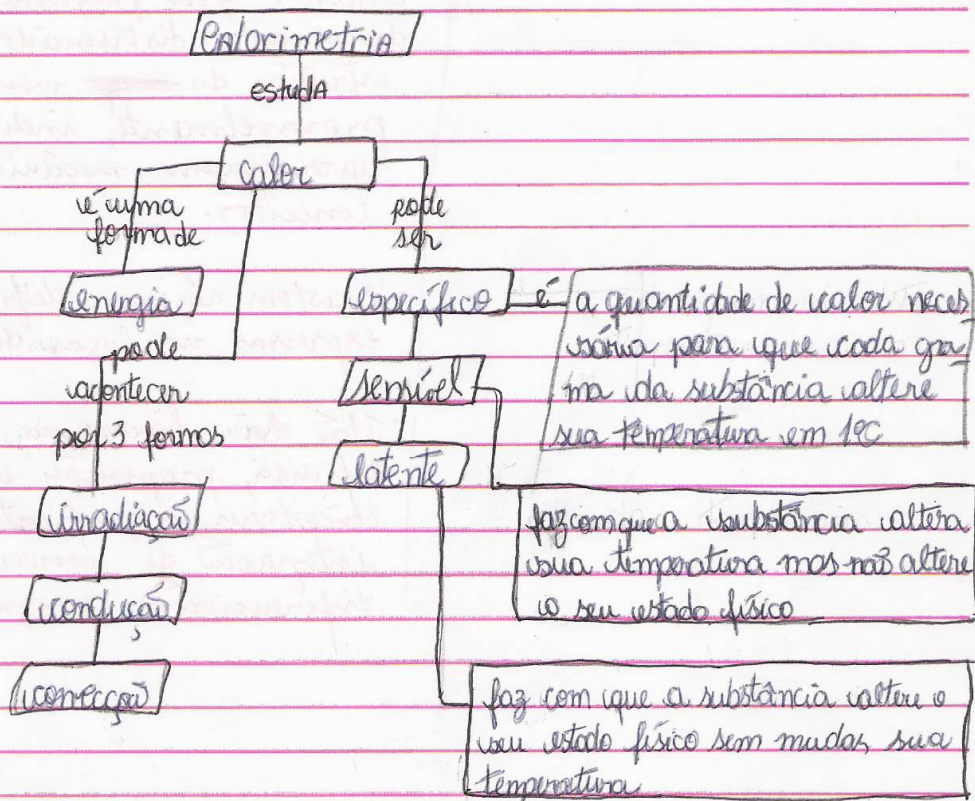 Calorimetria
estuda
calor
é uma
forma de
pode
ser
energia
específico
é
a quantidade de calor neces
sária para que cada gra
ma da substância altere
sua temperatura em 1ºC
pode
acontecer
por 3 formas
sensível
latente
irradiação
condução
convecção
faz com que a substância altera
sua temperatura mas não altere
o seu estado físico
faz com que a substância altere o
seu estado físico sem mudar sua
temperatura